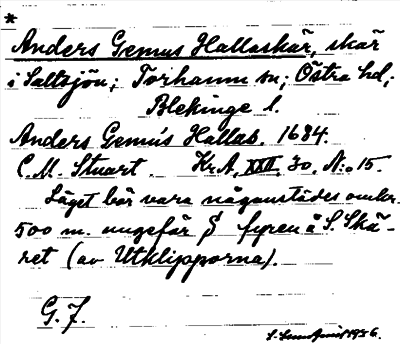 *
Anders Gemus Hallaskär, skär
i Saltsjön; Torhamn sn; Östra hd;
Blekinge l.
Anders Gemús Hallab. 1684.
C.M. Stuart. Kr.A, XXII, 30, N:o 15.
Läget bör vara någonstädes omkr.
500 m. ungefär S fyren å S. Skä-
ret (av Utklipporna).
G. F.
1956.